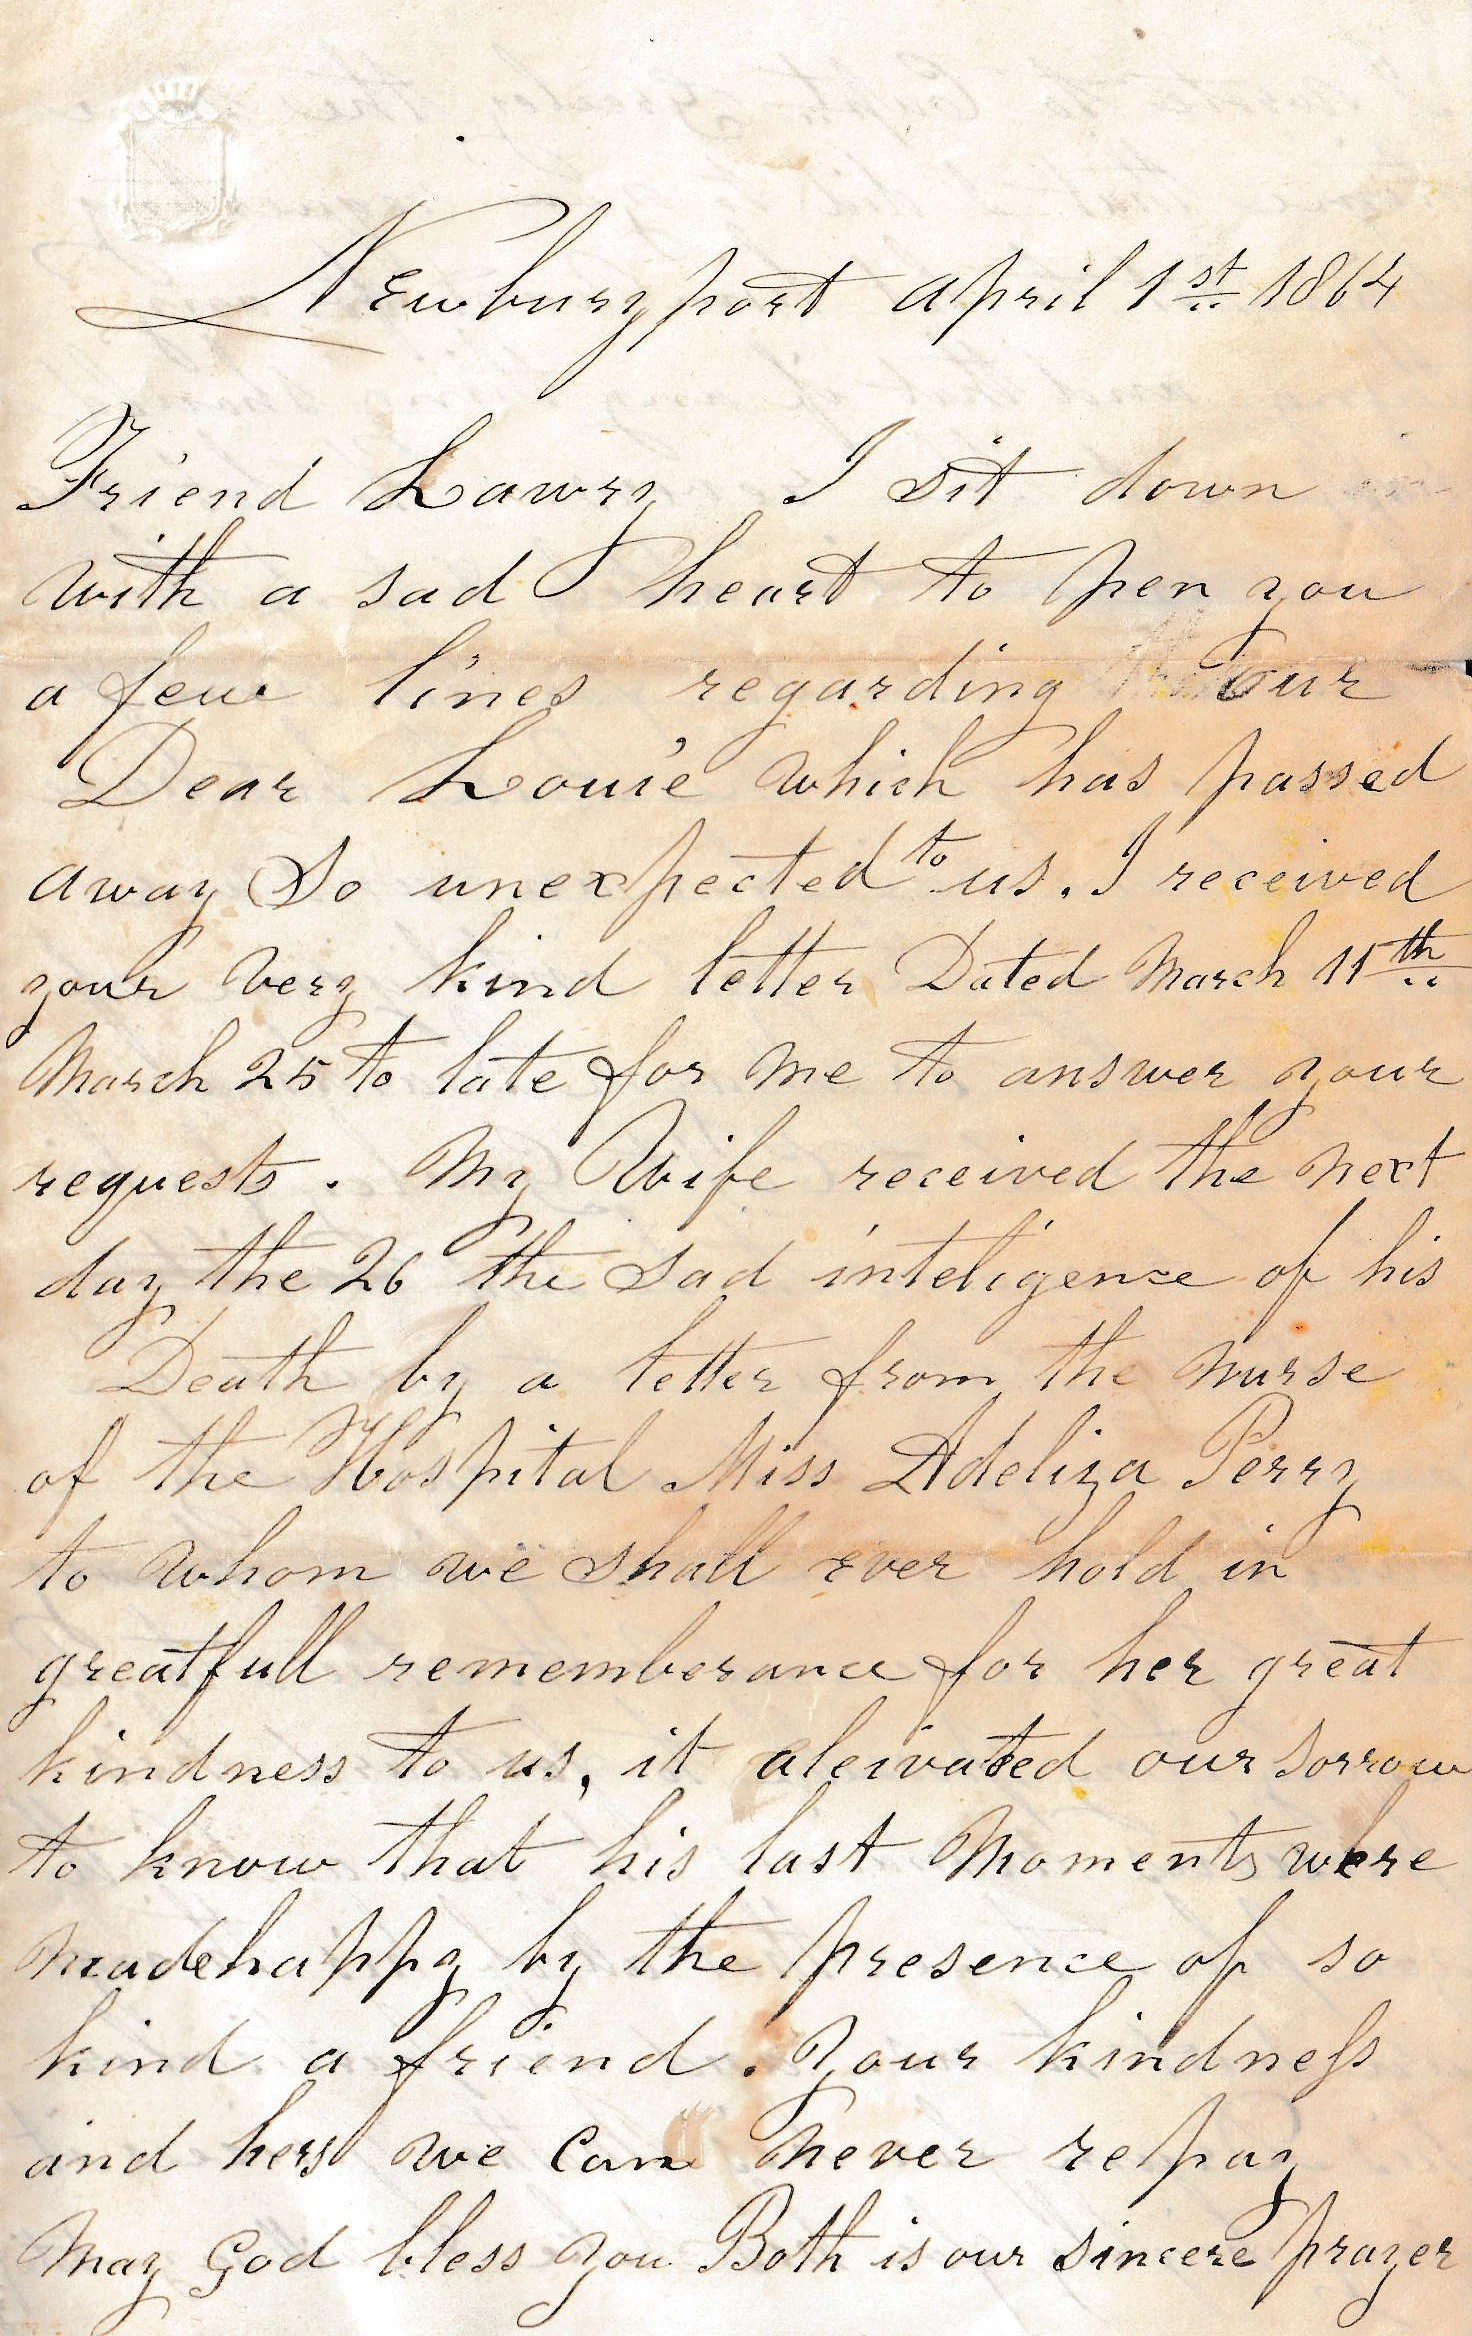 Newburyport april 1st 1864
Friend Lawry I sit down
with a sad heart to pen you
a few lines regarding our
Dear Louie which has passed
away So unexpected to us. I received
your very kind letter Dated March 11th
March 25 to late for me to answer your
requests. My Wife received the next
day the 26 the sad inteligence of his
Death by a letter from the nurse
of the Hospital Miss Adeliza Perry
to whom we shall ever hold in
greatfull rememberance for her great
kindness to us, it aleivated our sorrow
to know that his last Moments were
madehappy by the presence of so
kind a friend. Your kindness
and hers we Can never repay
May God bless you Both is our sincere prayer